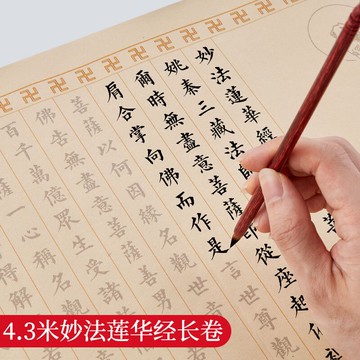 妙法蓮華經
姚秦三藏法師
爾時無盡意菩薩即從座起
肩合掌向佛而作是言世尊
菩薩以何因緣名觀
佛告無盡意菩薩
百千萬億眾生受諸
一心稱名
4.3米妙法莲华经长卷